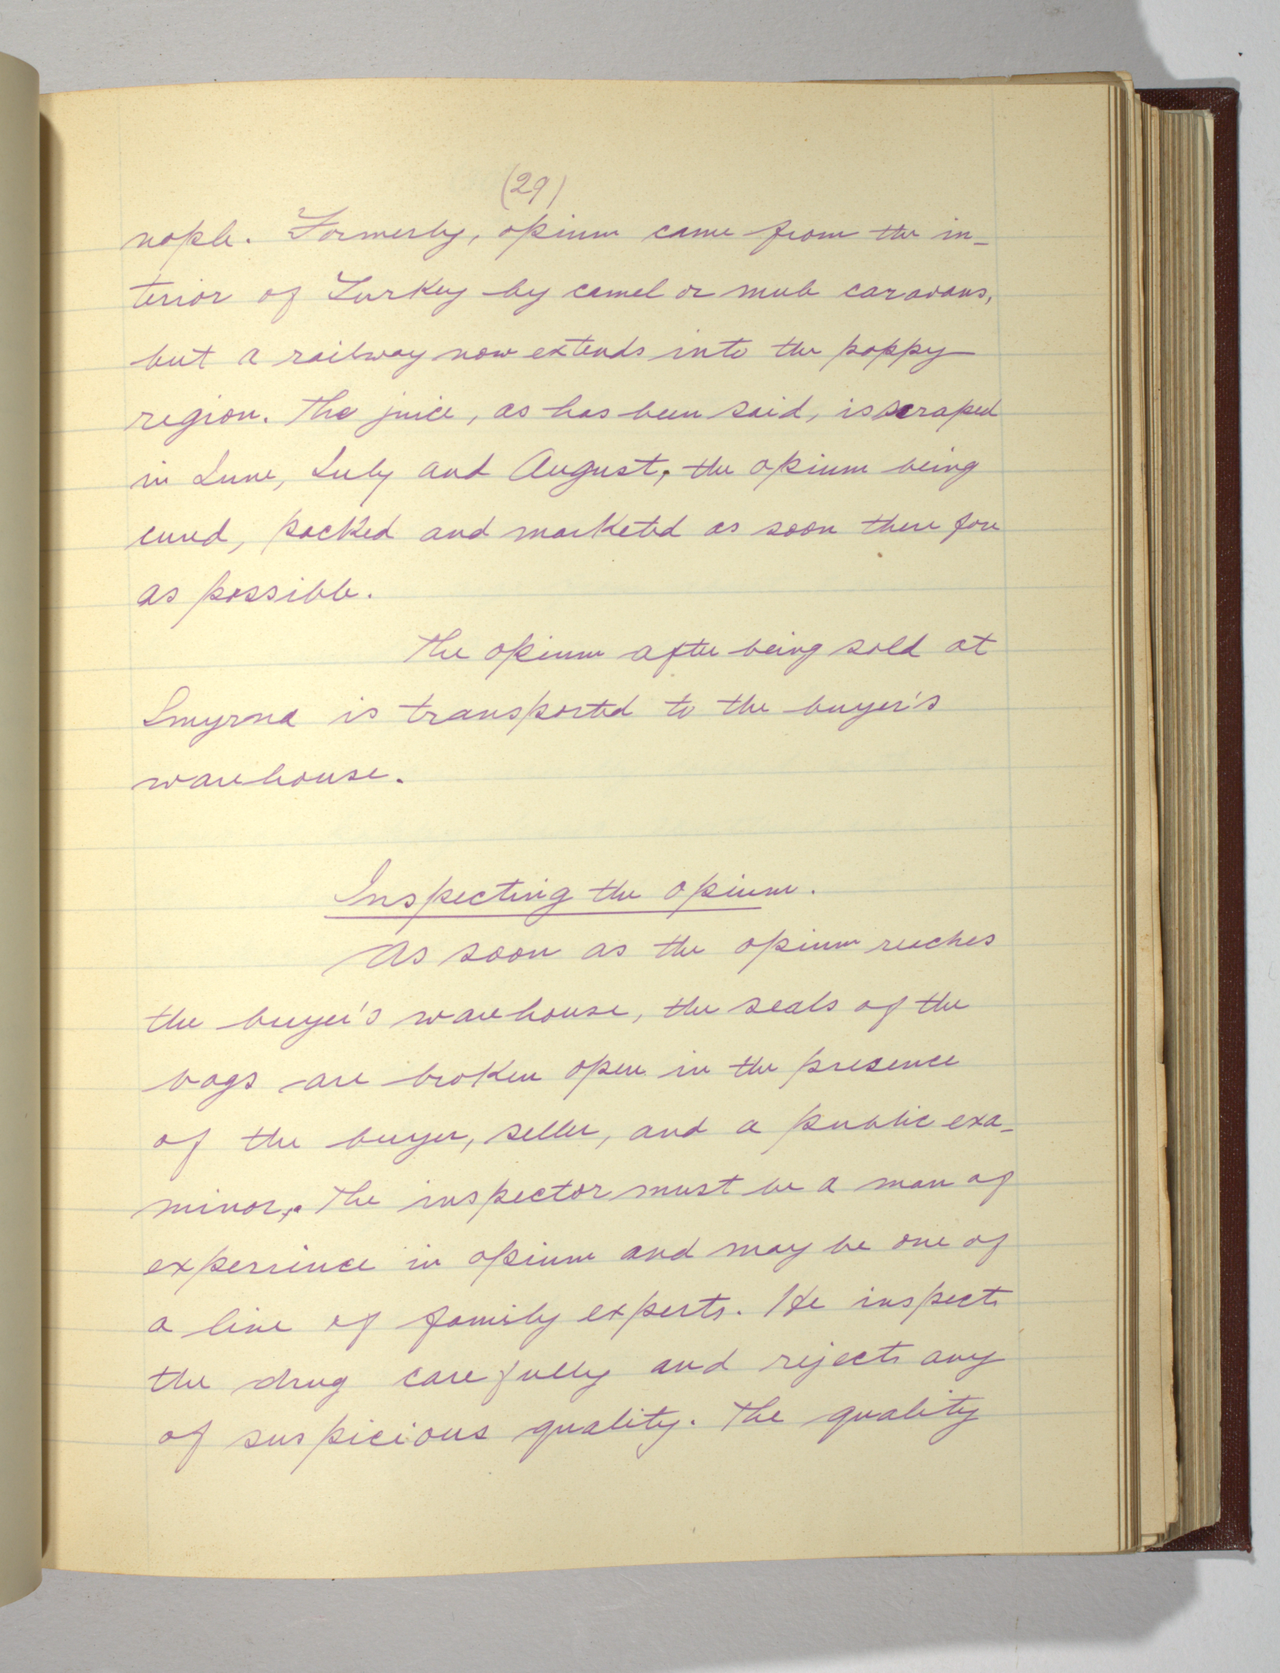 (29)
nople. Formerly, opium came from the in-
terior of Turkey by camel or mule caravans,
but a railway now extends into the poppy
region. The juice, as has been said, is scraped
in June, July and August, the opium being
cured, packed and marketed as soon there fore
as possible.
The opium after being sold at
Smyrna is transported to the buyer's
warehouse.
Inspecting the opium.
As soon as the opium reaches
the buyer's warehouse, the seals of the
bags are broken open in the presence
of the buyer, seller, and a public exa-
minor. The inspector must be a man of
experience in opium and may be one of
a line of family experts. He inspects
the drug carefully and rejects any
of suspicious quality. The quality